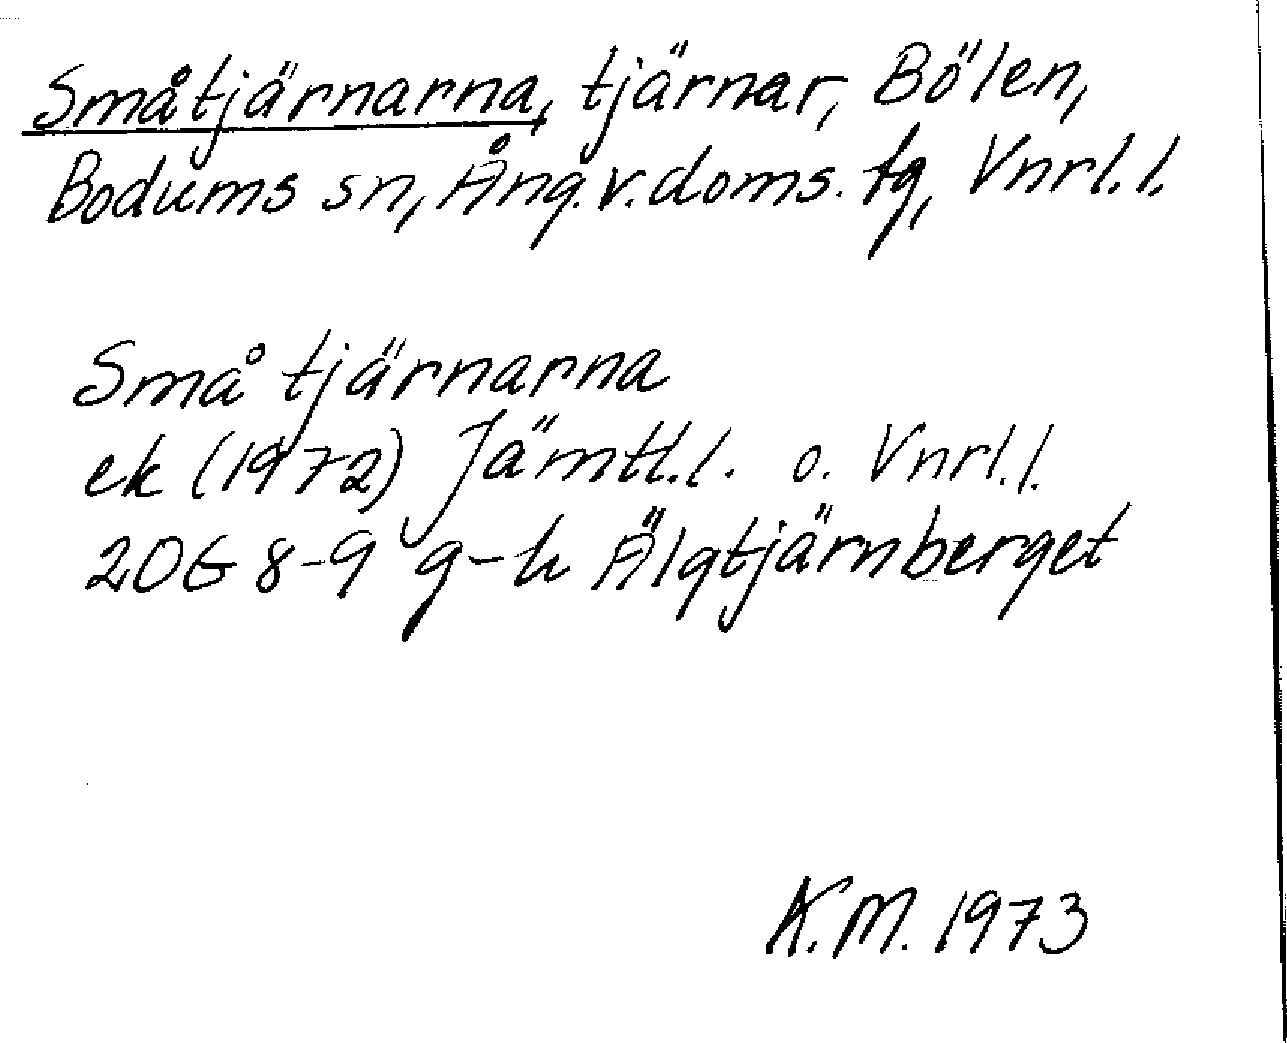 Småtjärnarna, tjärnar, Bölen,
Bodums sn, Ång.v.doms. tg, Vnrl.l.
Små tjärnarna
ek (1972) Jämtl.l. o. Vnrl.l.
20G 8-9 g-h Älgtjärnberget
K.M. 1973